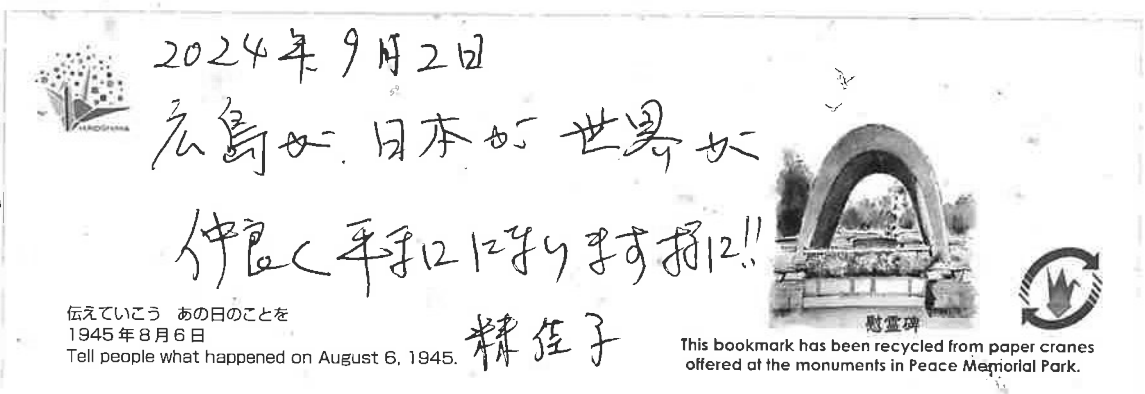 2024年9月2日
HIROSHIMA
広島が、日本が 世界が
仲良く平和になります様に!!
伝えていこう あの日のことを
1945年8月6日
Tell people what happened on August 6, 1945.
佳子
慰霊碑
This bookmark has been recycled from paper cranes
offered at the monuments in Peace Memorial Park.